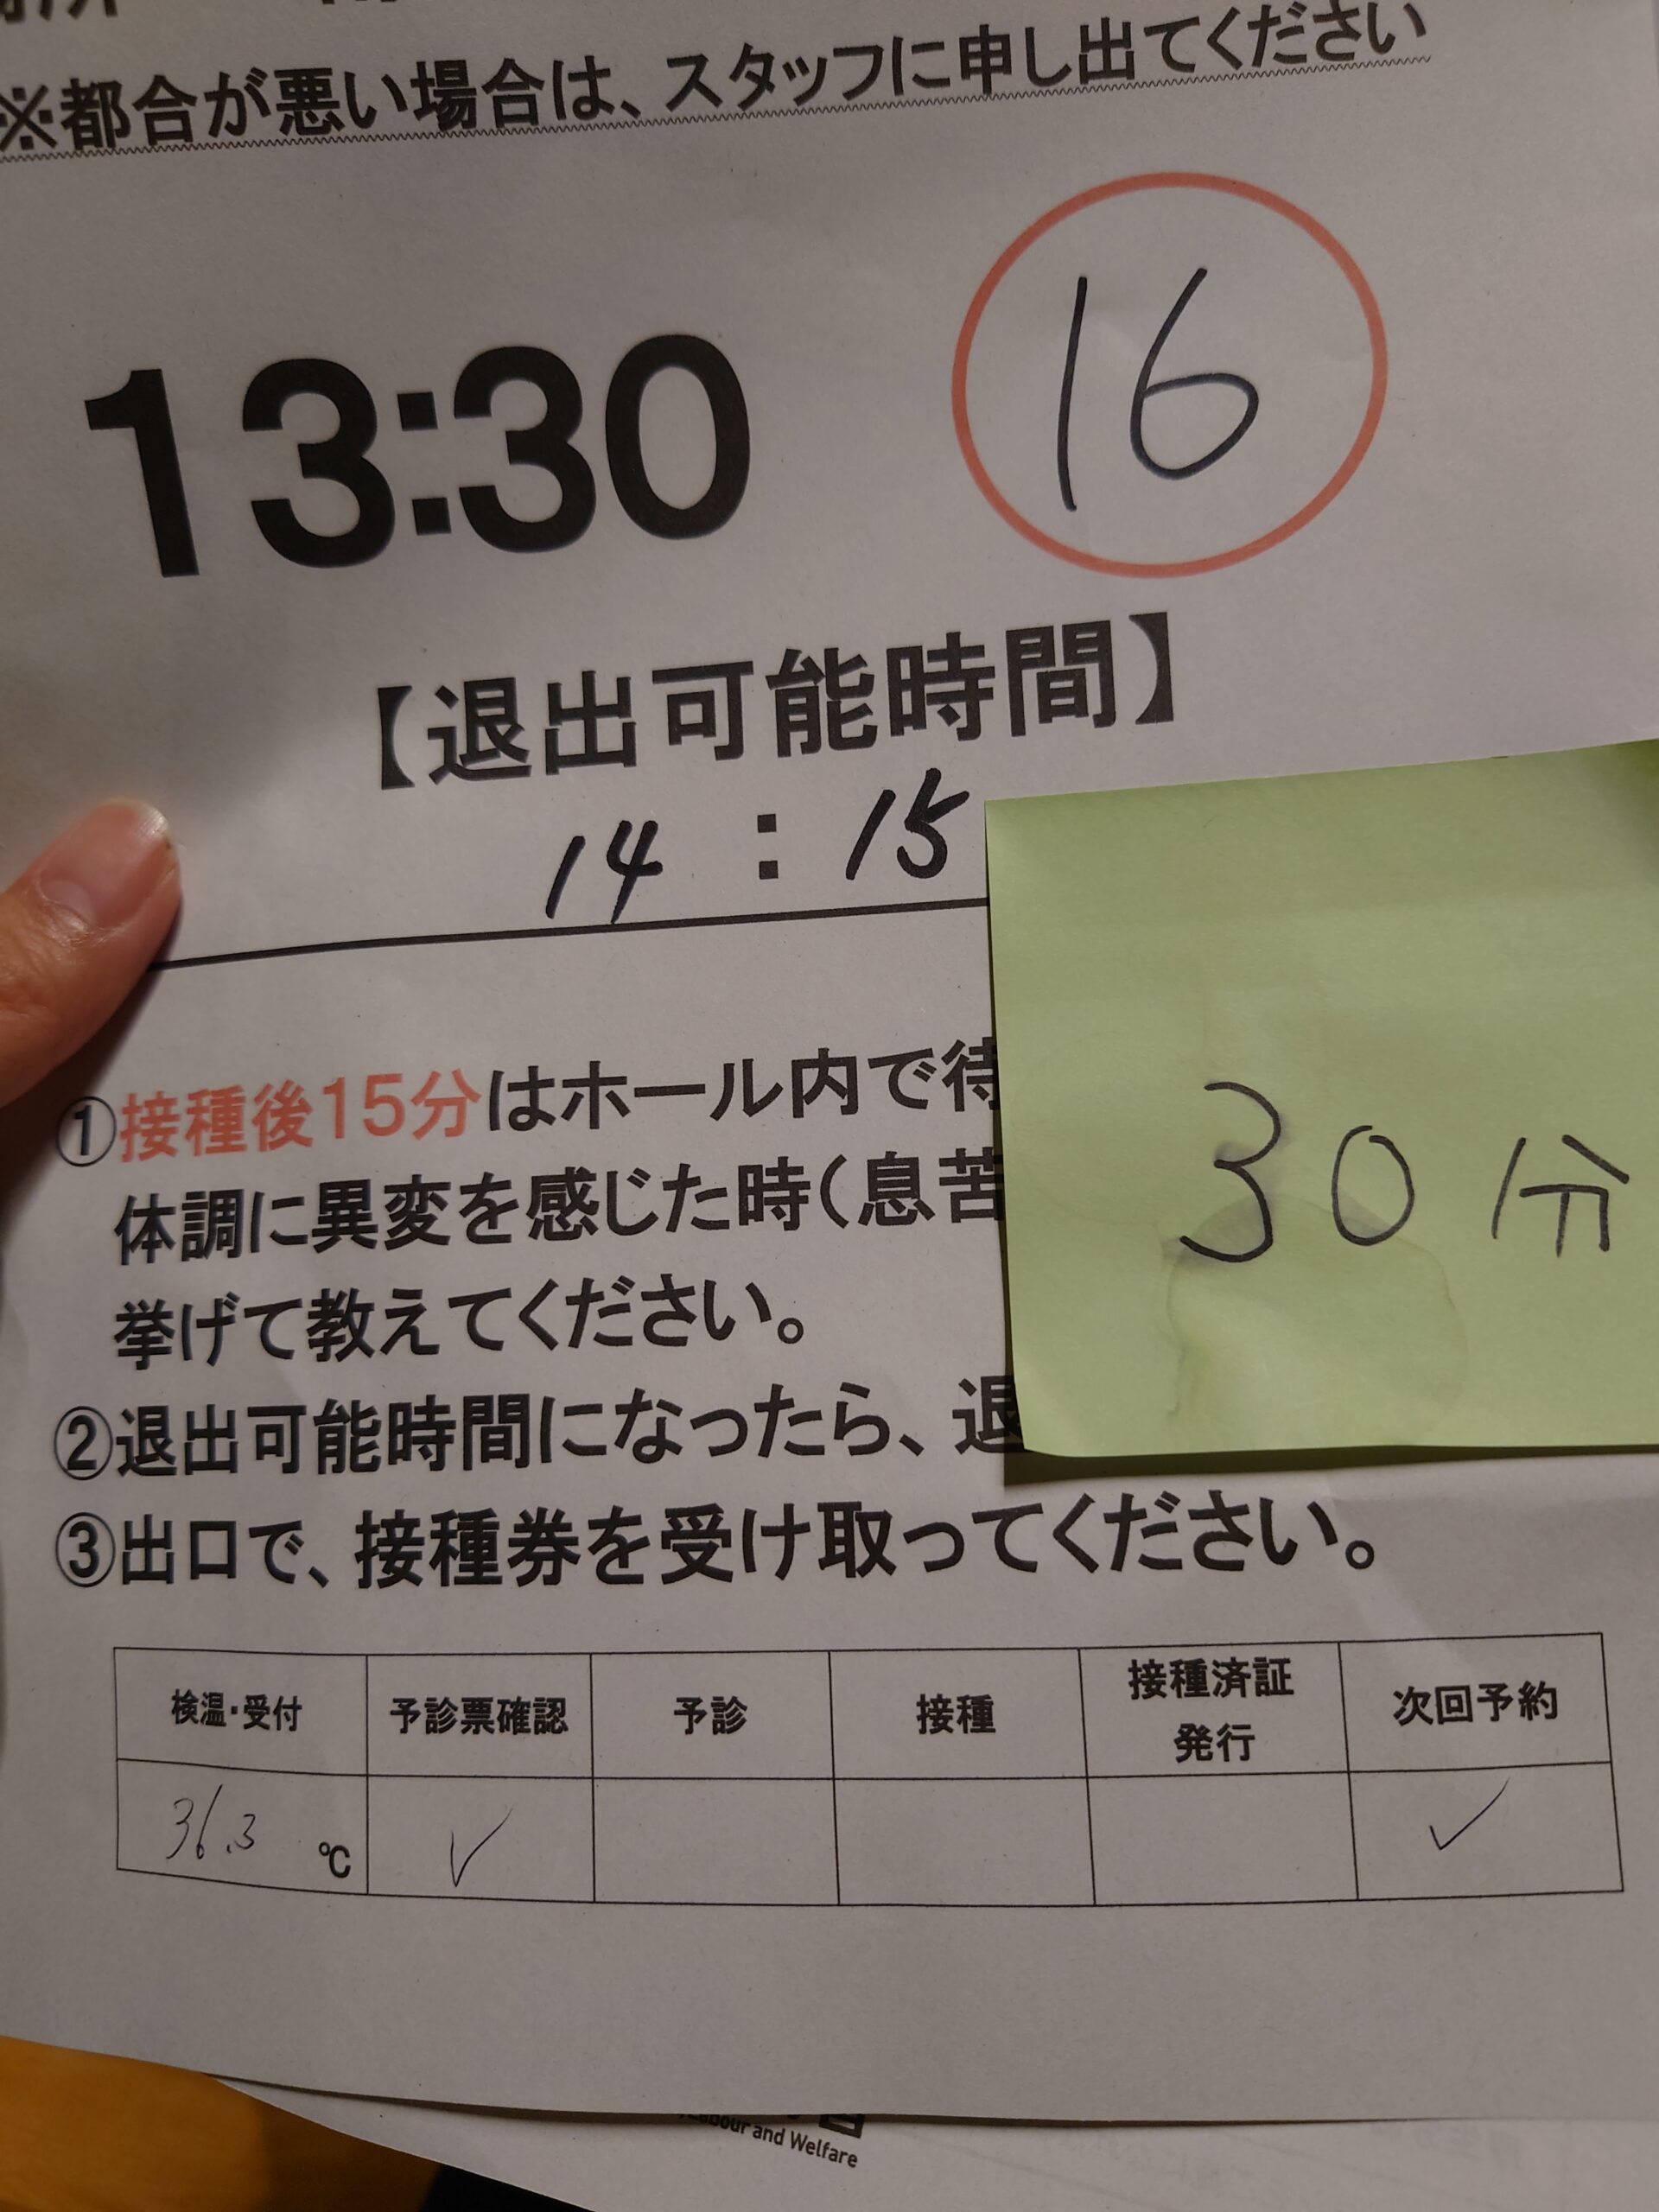 ※都合が悪い場合は、スタッフに申し出てください
13:30
16
【退出可能時間】
14 : 15
①接種後15分はホール内で待
体調に異変を感じた時(息苦
挙げて教えてください。
②退出可能時間になったら、退
③出口で、接種券を受け取ってください。
30分
検温・受付 予診票確認 予診 接種 接種済証発行 次回予約
36.3 ℃ ✓ ✓
Labour and Welfare